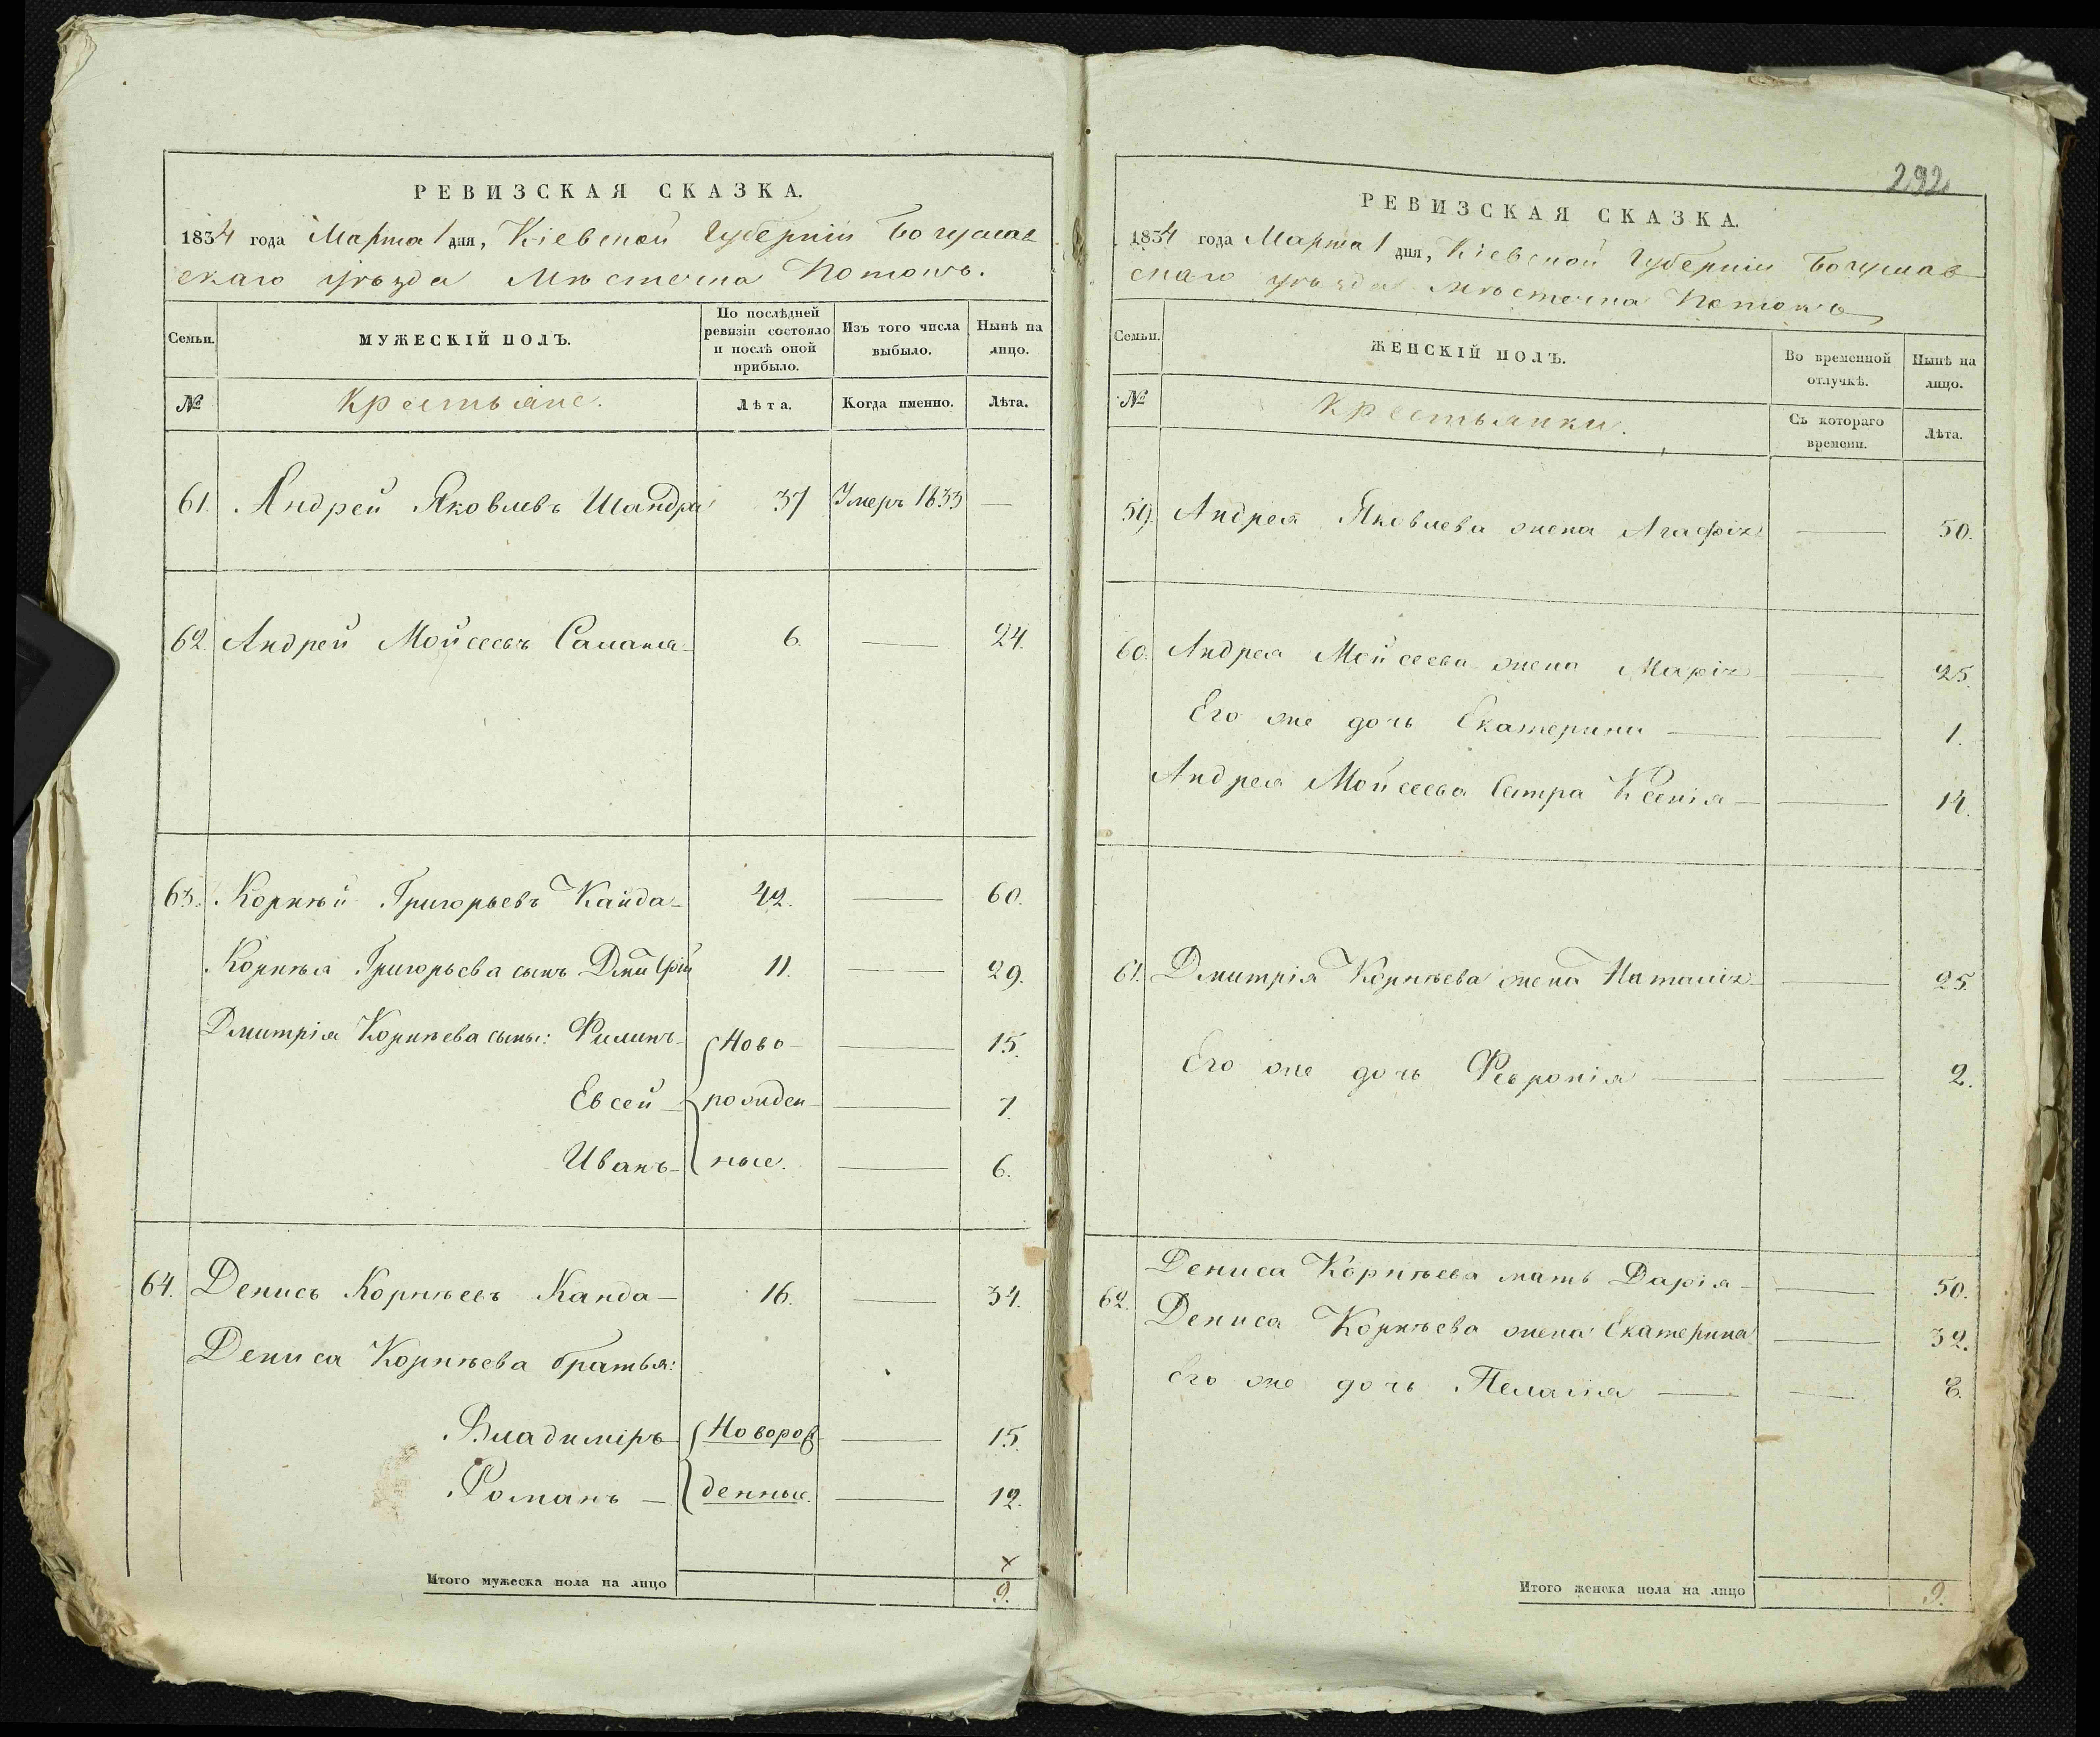 РЕВИЗСКАЯ СКАЗКА.
1834 года Марта 1 дня, Кіевской Губерніи Богуслав
скаго уѣзда Мѣстечка Потокъ.
Семьи.
МУЖЕСКІЙ ПОЛЪ.
По послѣдней
ревизіи состояло
и послѣ оной
прибыло.
Изъ того числа
выбыло.
Нынѣ на
лицо.
№
Крестьяне.
Лѣта.
Когда именно.
Лѣта.
61. Андрей Яковлевъ Шандра 37 Умеръ 1833 —
62. Андрей Мойсеевъ 6. — 24.
63. Корнѣй Григорьевъ Кайда — 42. — 60.
Корнѣя Григорьева сынъ Дмитрій 11. — 29.
Дмитрія Корнѣева сыны: Филипъ — Ново — 15.
Евсей — рожден — 7.
Иванъ — ные. — 6.
64. Денисъ Корнѣевъ Канда — 16. — 34.
Дениса Корнѣева братья:
Владиміръ Новорож — 15.
Романъ — денные. — 12.
х
Итого мужеска пола на лицо 9.
292
РЕВИЗСКАЯ СКАЗКА.
1834 года Марта 1 дня, Кіевской Губерніи Богуслав
скаго уѣзда Мѣстечка Потокъ
Семьи.
ЖЕНСКІЙ ПОЛЪ.
Во временной
отлучкѣ.
Нынѣ на
лицо.
№
Крестьянки.
Съ котораго
времени.
Лѣта.
59. Андрея Яковлева жена Агафія — 50.
60. Андрея Мойсеева жена Марія — 25.
Его же дочь Екатерина — — 1.
Андрея Мойсеева Сестра Ксенія — — 14.
61. Дмитрія Корнѣева жена Наталія — 25.
Его же дочь Февронія — — 2.
Дениса Корнѣева мать Дарія — — 50.
62. Дениса Корнѣева жена Екатерина — 32.
Его же дочь Пелагія — — 8.
Итого женска пола на лицо 9.